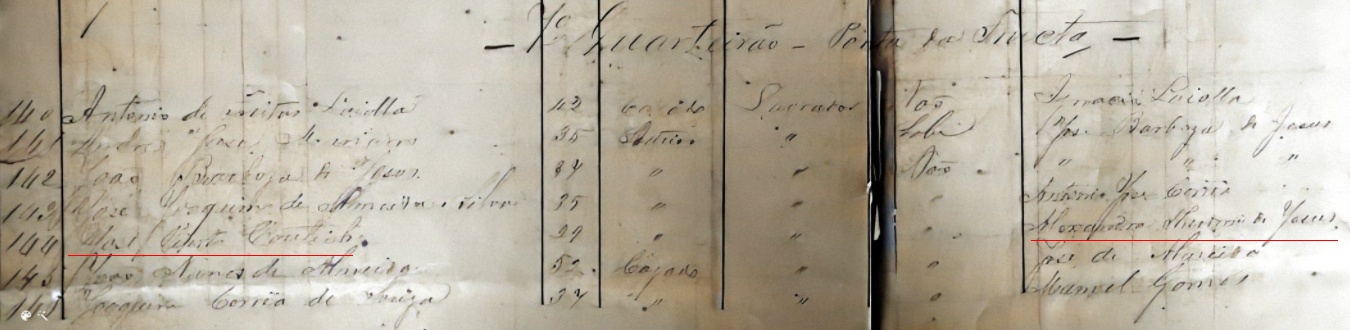 7º Quarteirão - Ponta da Fructa -
140 Antonio de Freitas Loiolla 42 Casado Lavrador Não Ignacio Loiolla
141 José 35 Solteiro " Sabe José Barboza de Jesus
142 João Barboza de Jesus 37 " " Não " " "
143 José Joaquim de Almeida e Silva 35 " " " Antonio José Corrêa
144 José Pinto Coutinho 29 " " " Alexandre de Jesus
145 João Nunes de Almeida 52 Casado " " José de Almeida
146 Joaquim Corrêa de Souza 37 " " " Manoel Gomes